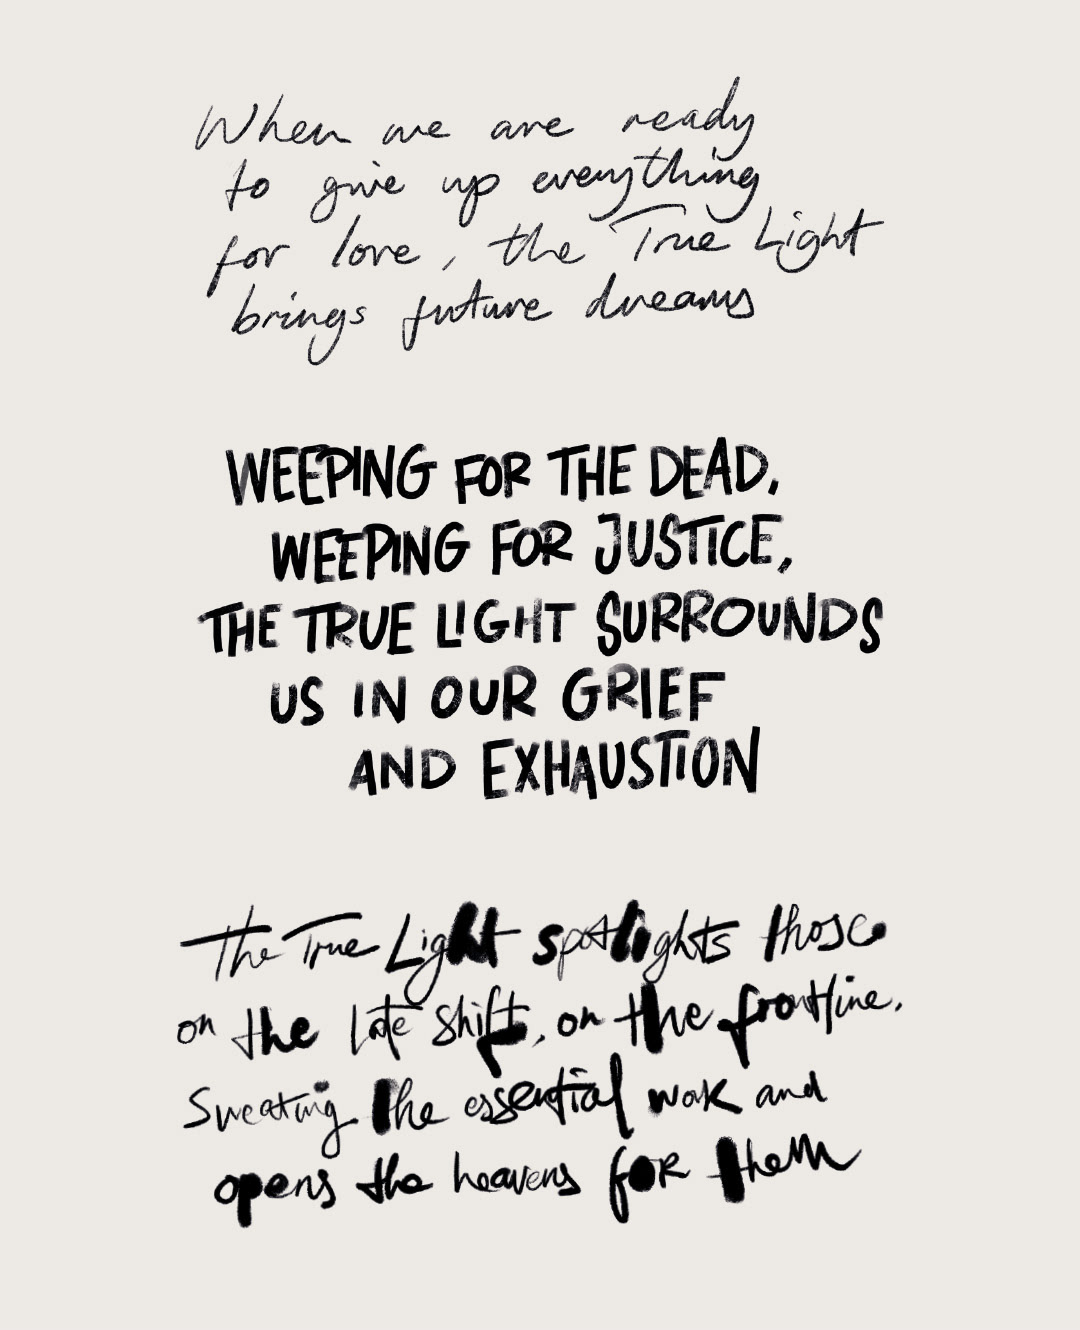 When we are ready
to give up everything
for love, the True Light
brings future dreams
WEEPING FOR THE DEAD,
WEEPING FOR JUSTICE,
THE TRUE LIGHT SURROUNDS
US IN OUR GRIEF
AND EXHAUSTION
The True Light spotlights those
on the late shift, on the frontline,
Sweating the essential work and
opens the heavens for them